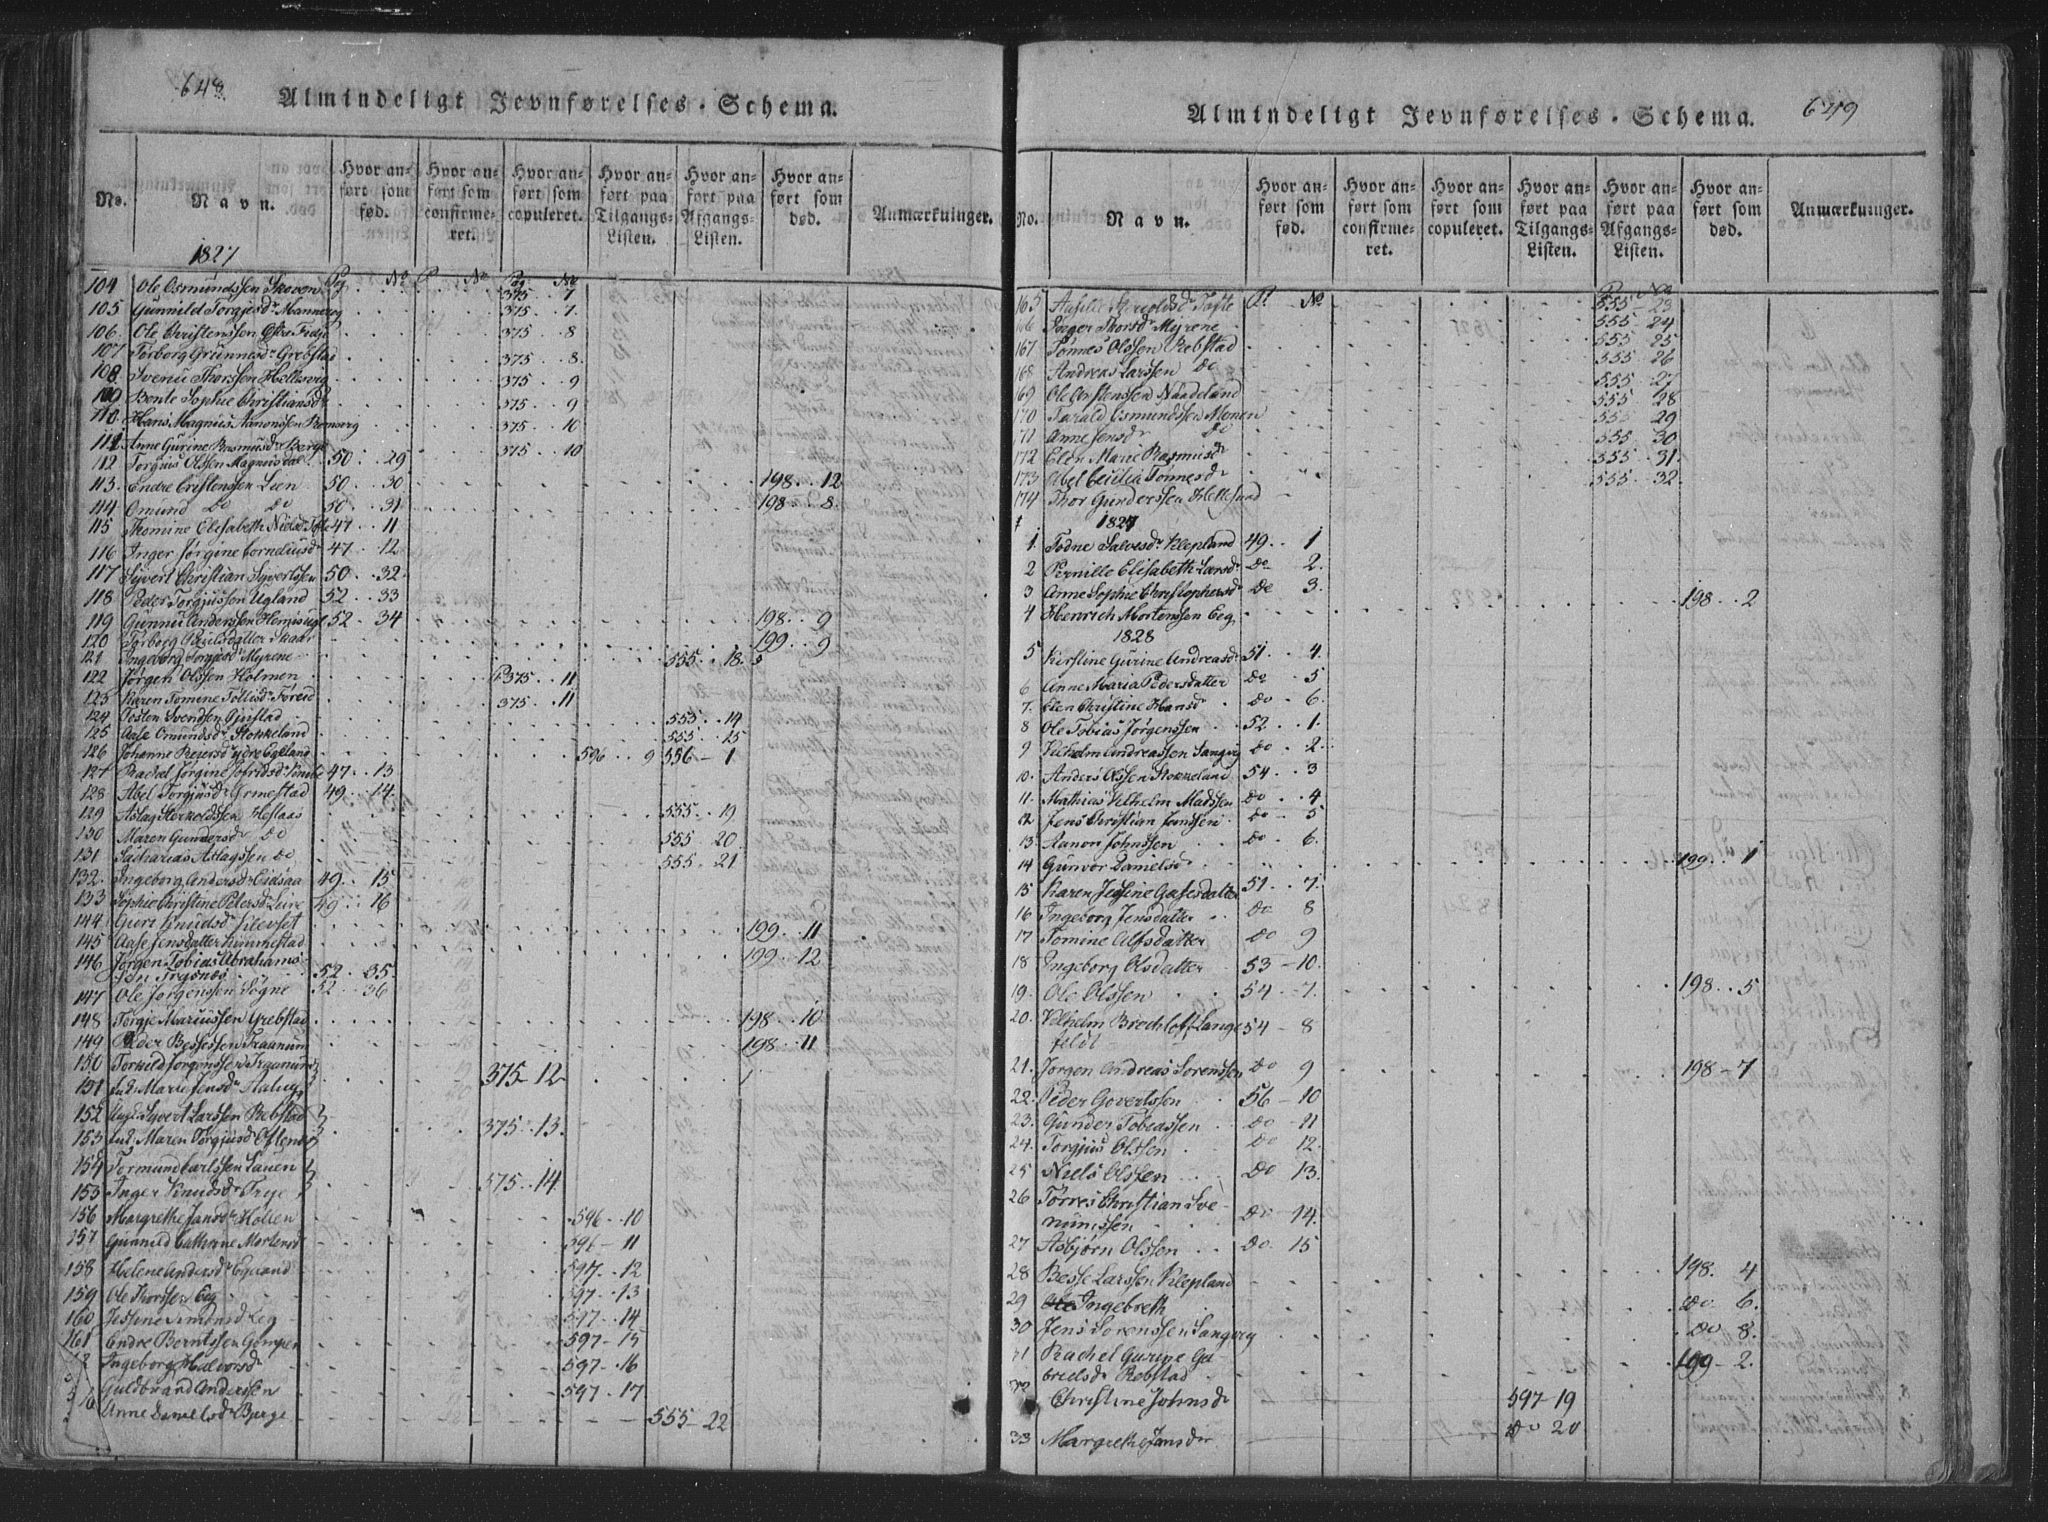 648.
Almindeligt Jevnførelses-Schema.
No.
Navn.
Hvor anført som fød.
Hvor anført som confirmeret.
Hvor anført som copuleret.
Hvor anført paa Tilgangs-Listen.
Hvor anført paa Afgangs-Listen.
Hvor anført som død.
Anmærkninger.
1827
Pag. No P No Pag No
104 Ole Osmundssen Skoven 375 7
105 Gunnild Torgjesdr 375 7.
106 Ole Christenssen 375 8
107 Torborg Grunnesdr Grebstad 375 8.
108 Svenu Thorssen Hellesvig 375 9
109 Bente Sophie Christiansdr 375 9
110 Hans Magnus Aanonssen 375 10
111 Anne Gurine Rasmusdr Berge 375 10
112 Torjuus Olssen Magnusdal 50 29
113. Endre Cristenssen Lien 50 30 198 12
114 Omund Do Do 50 31 198 8.
115 Thomine Elisabeth Nielsdr 47 11
116 Inger Jørgine Corneliusdr 47 12
117 Syvert Christian Syvertssen 50 32
118 Peder Torgjussen Ugland 52 33
119 Gunnu Anderssen 52 34 198 9
120 Torborg 199 9
121 Ingeborg Torgjesdr Myrene 555 18.
122 Jørgen Olssen Holmen P375 11
123 Karen Tomine 375 11
124 Svendsen 555 14
125 Aase Omundsdr Stokkeland 555 15
126 Johanne Reiersdr ydre Egeland 596 9 556 1
127 Rachel Jørgine 47 13
128 Abel Torgjusdr Grmestad 49 14
129 Aslag 555 19
130 Maren Gundersdr Do 555 20
131 Sacharias Attagssen Do 555 21
132. Ingeborg Andersdr Eidsaa 49 15
133 Sophie Christine Petersdr 49 16
144 Guri Knudsdr 199 11
145 Aase Jensdatter 199 12
146 Jørgen Tobias Abrahams-
sen Trysnæs 52 35.
147 Ole Jørgenssen Søgne 52 36
148 Torgje Mariussen Grebstad 198 10
149 Peder Bessessen Traanum 198 11
150 Torkild Jørgenssen Traanum
151 Marie Jensdr 375 12
152 Syvert Larssen Rebstad
153 Maren Torgjusdr 375 13.
154 Tormund Carlssen Lauen
153 Inger Knudsdr Trye 575 14
156 Margrethe Jansdr Holten 596 10
157 Gunnild Cathrine Mortensdr 396 11
158 Helene Andersdr Egeland 597 12
159 Ole Thorssen Eeg 597 13
160 Jessine Simonsdr Eeg 597 14
161 Endre Berntssen 597 15
Ingeborg Halvorsdr 597 16
Guldbrand Anderssen 597 17
Anne Danielsdr Berge 555 22

649
Almindeligt Jevnførelses-Schema.
No.
Navn.
Hvor anført som fød.
Hvor anført som confirmeret.
Hvor anført som copuleret.
Hvor anført paa Tilgangs-Listen.
Hvor anført paa Afgangs-Listen.
Hvor anført som død.
Anmærkninger.
P. No P. No
165 Tofte 555 23
166 Inger Thorsdr Myrene 555 24
167 Tønnes Olssen Rebstad 555 25
168 Andreas Larssen Do 555 26
169 Ole Cristenssen Naadeland 555 27
170 Tarald Osmundssen Monen 555 28
171 Anne Jensdr Do 555 29
172 Elen Marie Rasmusdr 555 30
173 Abel Cecilia Tønnesdr 555 31
174 Thor Gunderssen Hellesund 555 32
1827
1. Todne Salvesdr Klepland 49 1
2 Pernille Elisabeth Larsdr Do 2.
3 Anne Sophie Christophersdr Do 3.
4 Henrich Mortenssen Eeg 198 2
1828
5 Kirstine Gurine Andreasdr 51 4.
6 Anne Maria Pedersdatter Do 5
7. Elen Christine Hansdr Do 6.
8 Ole Tobias Jørgenssen 52 1.
9 Vilhelm Andreassen Sangvig Do 2.
10. Anders Olssen Stokkeland 54 3
11. Mathias Vilhelm Madssen Do 4
12 Jens Christian Jenssen Do 5
13 Aanon Johnssen Do 6.
14 Gunvor Danielsdr 199 1
15 Karen Jessine Gasesdatter 51 7.
16 Ingeborg Jensdatter Do 8
17 Tomine Alfsdatter Do 9
18 Ingeborg Olsdatter 53 10.
19. Ole Olssen 54 7. 198 5
20. Vilhelm Brechloff Lange-
feldt 54 8
21. Jørgen Andreas Sørenssen Do 9 198 7
22. Peder Govertssen 56 10
23. Gunder Tobiassen Do 11
24. Torgjus Olssen Do 12.
25 Niels Olssen Do 13.
26 Tørres Christian Sve-
nunssen Do 14.
27 Asbjørn Olssen Do 15
28 Besse Larssen Klepland 198. 4
29 Ole Ingebreth Do 6.
30 Jens Sørenssen Sangvig Do 8.
31 Rachel Gurine Ga-
brielsdr Rebstad 199 2.
32 Christine Johnsdr 597 19
33 Margrethe Jansdr Do 20